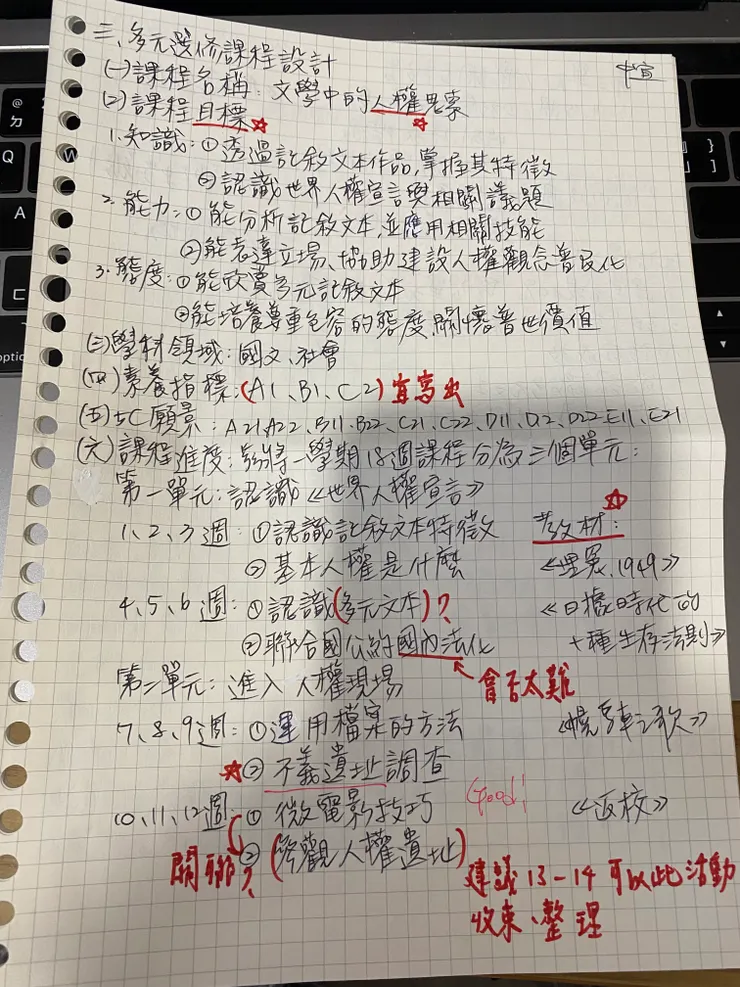 三、多元選修課程設計
中宣
(一)課程名稱：文學中的人權思索
(二)課程目標☆ ☆
1.知識：①透過記敘文本作品，掌握其特徵
②認識世界人權宣言與相關議題
2.能力：①能分析記敘文本，並應用相關技能
②能表達立場、協助建設人權觀念普民化
3.態度：①能欣賞多元記敘文本
②能培養尊重包容的態度關懷普世價值
(三)學科領域：國文、社會
(四)素養指標：(A1、B1、C2) 宜寫出
(五)5C願景：A21、A22、B11、B22、C21、C22、D11、D12、D22、E11、E21
(六)課程進度：將一學期18週課程分為三個單元：
第一單元：認識《世界人權宣言》
1、2、3週：①認識記敘文本特徵 教材：☆
②基本人權是什麼 《埋冤，1949》
4、5、6週：①認識(多元文本)？ 《日據時代的
②聯合國公約國內法化 十種生存法則》
會否太難
第二單元：進入人權現場
7、8、9週：①運用檔案的方法 《幌馬車之歌》
★②不義遺址調查
10、11、12週：①微電影技巧 Good! 《返校》
關聯？②(參觀人權遺址)
建議13-14可以此活動
收束、整理